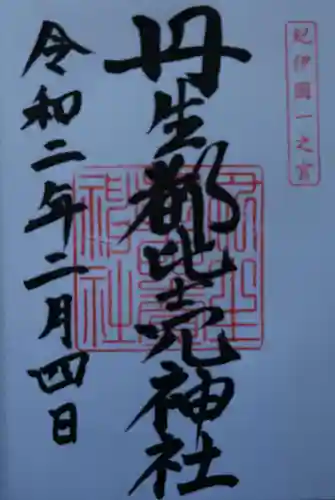 紀伊國一之宮
丹生都比売神社
令和二年二月四日